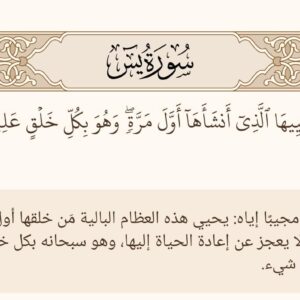 سُورَةُ يسٓ
ٱلَّذِيٓ أَنشَأَهَآ أَوَّلَ مَرَّةٖۖ وَهُوَ بِكُلِّ خَلۡقٍ
مجيبًا إياه: يحيي هذه العظام البالية مَن خلقها أول
يعجز عن إعادة الحياة إليها، وهو سبحانه بكل
شيء.